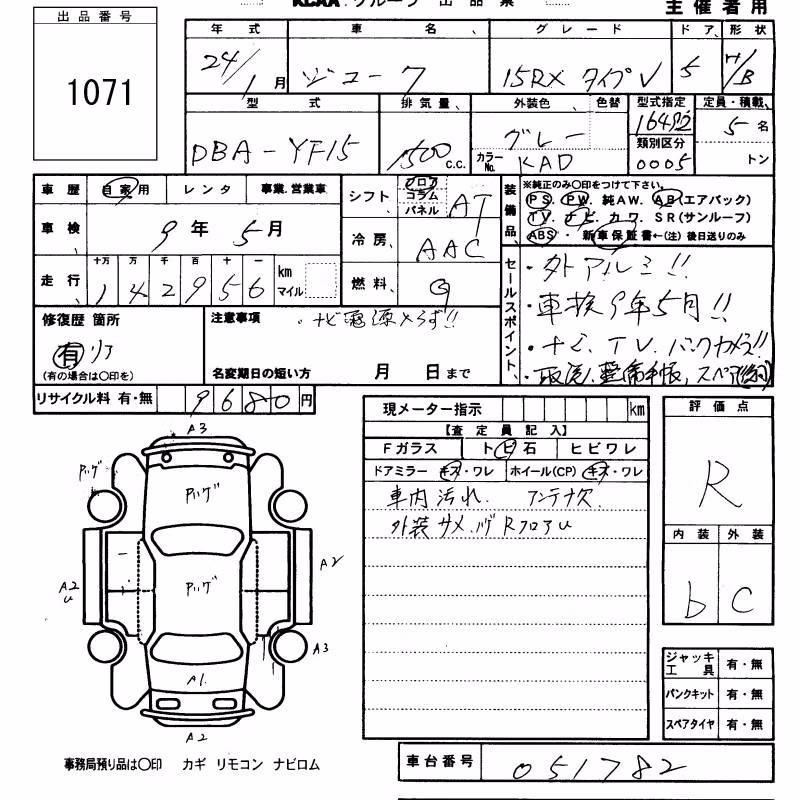 KCAA グループ 出品票
主催者用
出品番号
1071
年式 車名 グレード ドア 形状
24/1月 ジューク 15RX タイプV 5 H/B
型式 排気量 外装色 色替 型式指定 定員・積載
DBA-YF15 1500 c.c. グレー カラーNo. KAD 16492 5名
類別区分
0005 トン
車歴 自家用 レンタ 事業.営業車
車検 9年5月
走行 十万 万 千 百 十 一
142956 km マイル
シフト フロア コラム パネル AT
冷房 AAC
燃料 G
装備品
※純正のみ○印をつけて下さい。
PS. PW. 純AW. AB(エアバック)
TV. ナビ. カワ. SR(サンルーフ)
ABS・新車保証書←(注)後日送りのみ
セールスポイント
・外アルミ!!
・車検9年5月!!
・ナビ、TV、バックカメラ!!
・取説、整備手帳、スペア
修復歴 箇所
有 リア
(有の場合は○印を)
注意事項
・ナビ電源入らず!!
名変期日の短い方 月 日まで
リサイクル料 有・無 9680円
現メーター指示 km
【査定員記入】
Fガラス トビ石 ヒビワレ
ドアミラー キズ・ワレ ホイール(CP) キズ・ワレ
車内汚れ. アンテナ欠
外装サメ.ハゲ RフロアU
評価点
R
内装 外装
b C
ジャッキ工具 有・無
パンクキット 有・無
スペアタイヤ 有・無
A3
ハゲ
ハゲ
ハゲ
A2
U
A2
A3
A1.
A2
事務局預り品は○印 カギ リモコン ナビロム
車台番号 051782